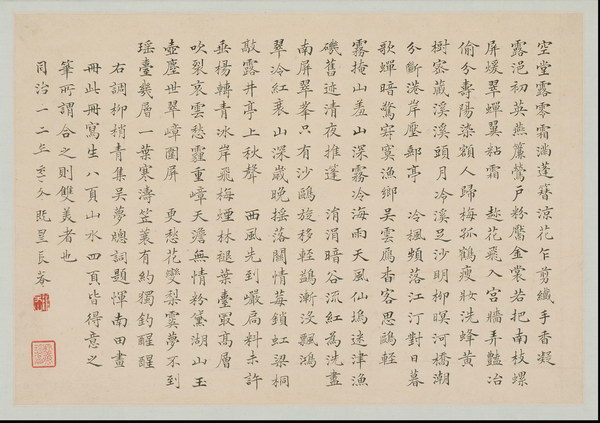 空堂露零霜滿蓬簪涼花乍剪纖手香凝
露浥初英燕簾鶯戶粉靨金裳若把南枝螺
屏煖翠蟬翼粘霜 趁花飛入宮牆弄豔冶
偷分壽陽染額人歸梅孤鶴瘦妝洗蜂黃
樹密藏溪溪頭月冷溪足沙明柳暝河橋潮
分斷港岸壓郵亭 冷楓頻落江汀對日暮
歌蟬暗驚寂寞漁鄉吳雲鴈杳客思鷗輕
霧掩山羞山深霧冷海雨天風仙塢遠津漁
磯舊迹清夜推蓬 涓涓暗谷流紅為洗盡
南屏翠峯只有沙鷗旋移輕鷁漸沒飄鴻
翠冷紅衰山深歲晚搖落關情莓鎖虹梁桐
敲露井亭上秋聲 西風先到巖扃料未許
垂楊轉青冰岸飛梅煙林褪葉臺最高層
吹裂哀雲愁霾重嶂天澹無情粉黛湖山玉
壺塵世翠嶂圍屏 更愁花變梨雲夢不到
瑤臺幾層一葉寒濤笠蓑有約獨釣醒醒
右調柳梢青集吳夢窗詞題惲南田畫
冊此冊寫生八頁山水四頁皆得意之
筆所謂合之則雙美者也
同治一二年